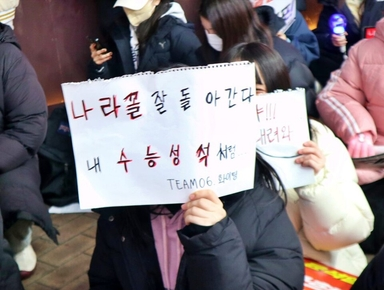 나라꼴 잘 돌아간다
내 수능성적처럼
TEAM06 화이팅
내려와